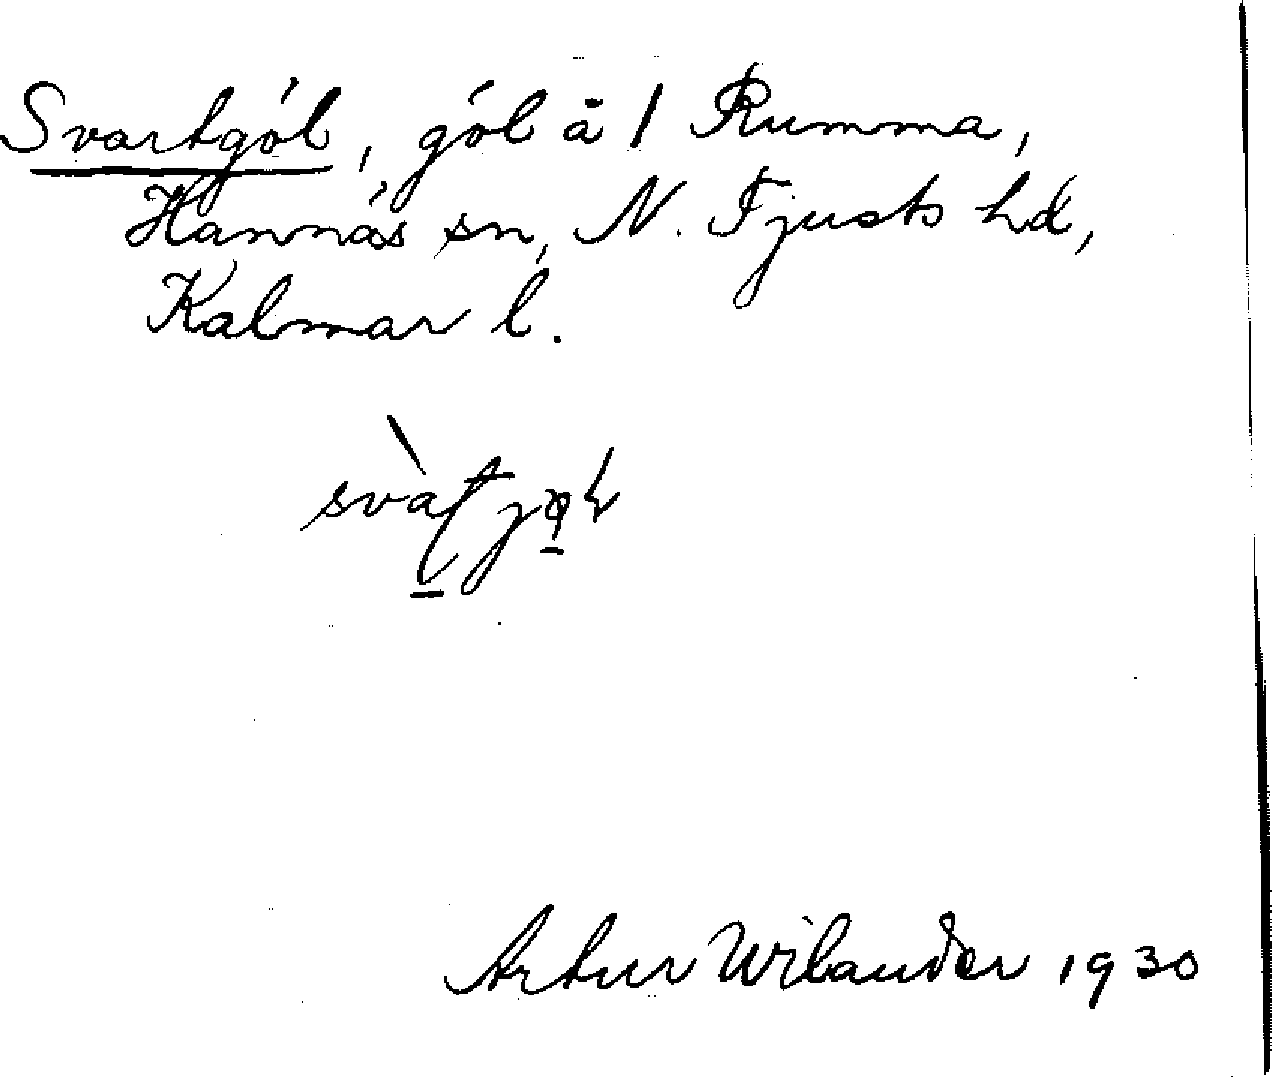 Svartgöl, göl å 1 Rumma,
Hannäs sn, N. Tjusts hd,
Kalmar l.
Artur Wilander 1930